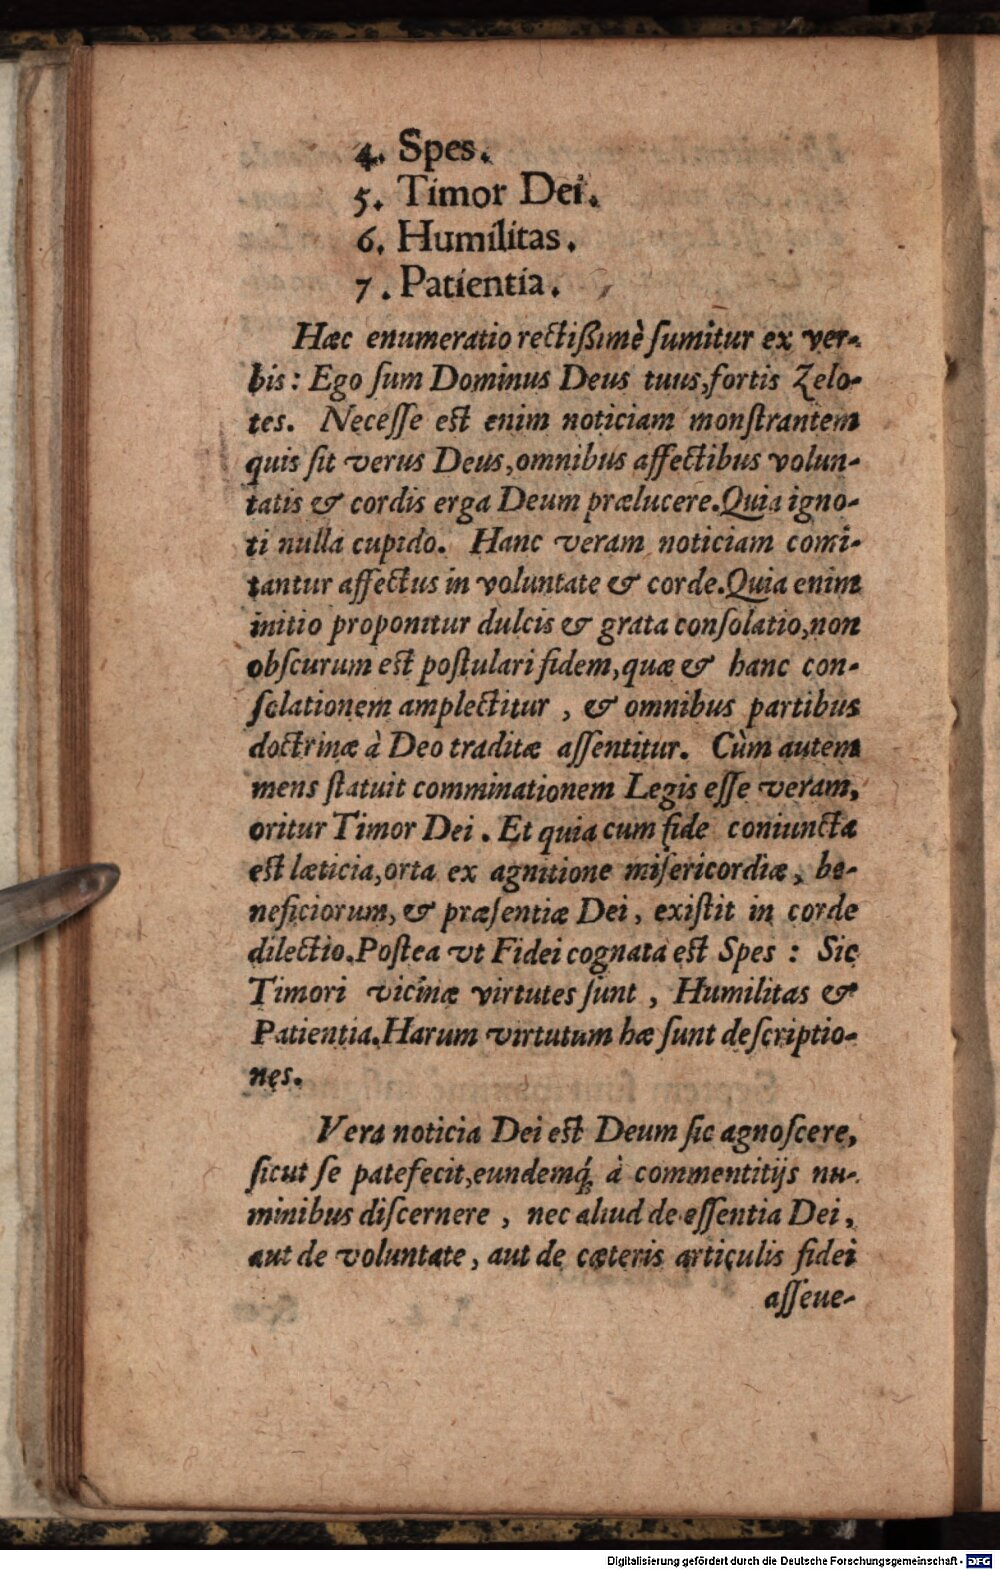 4. Spes.
5. Timor Dei.
6. Humilitas.
7. Patientia.
Hæc enumeratio rectißimè ſumitur ex ver-
bis: Ego ſum Dominus Deus tuus, fortis Zelo-
tes. Neceſſe est enim noticiam monſtrantem
quis ſit verus Deus, omnibus affectibus volun-
tatis & cordis erga Deum prælucere. Quia igno-
ti nulla cupido. Hanc veram noticiam comi-
tantur affectus in voluntate & corde. Quia enim
initio proponitur dulcis & grata conſolatio, non
obſcurum est poſtulari fidem, quæ & hanc con-
ſolationem amplectitur, & omnibus partibus
doctrinæ à Deo traditæ aſſentitur. Cùm autem
mens ſtatuit comminationem Legis eſſe veram,
oritur Timor Dei. Et quia cum fide coniuncta
est læticia, orta ex agnitione miſericordiæ, be-
neficiorum, & præſentiæ Dei, exiſtit in corde
dilectio. Poſtea vt Fidei cognata est Spes: Sic
Timori vicinæ virtutes ſunt, Humilitas &
Patientia. Harum virtutum hæ ſunt deſcriptio-
nes.
Vera noticia Dei est Deum ſic agnoſcere,
ſicut ſe patefecit, eundemq́; à commentitijs nu-
minibus diſcernere, nec aliud de eſſentia Dei,
aut de voluntate, aut de cæteris articulis fidei
aſſeue-
Digitalisierung gefördert durch die Deutsche Forschungsgemeinschaft - DFG